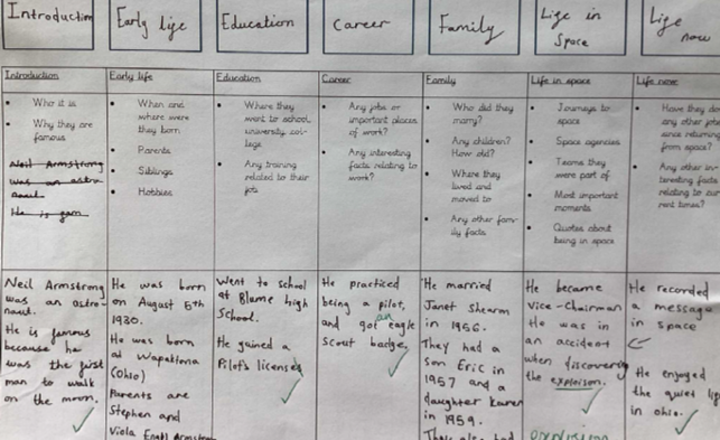 Introduction
Early life
Education
Career
Family
Life in
Space
Life
now
Introduction
Early life
Education
Career
Family
Life in space
Life now
Who it is
Why they are
famous
Neil Armstrong
was an astro
naut
He is fam
When and
where were
they born
Parents
Siblings
Hobbies
Where they
went to school,
university, col-
lege
Any training
related to their
job
Any jobs or
important places
of work?
Any interesting
facts relating to
work?
Who did they
marry?
Any children?
How old?
Where they
lived and
moved to
Any other fam-
ily facts
Journeys to
space
Space agencies
Teams they
were part of
Most important
moments
Quotes about
being in space
Have they do
any other jobs
since returning
from space?
Any other in-
teresting facts
relating to cur
rent times?
Neil Armstrong
was an astro-
naut.
He is famous
because he
was the first
man to walk
on the moon.
He was born
on August 5th
1930.
He was born
at Wapaktona
(Ohio)
Parents are
Stephen and
Viola Armstron
Went to school
at Blume high
School.
He gained a
Pilot's licenses
He practiced
being a pilot,
an
and got eagle
scout badge.
He married
Janet Shearm
in 1956.
They had a
son Eric in
1957 and a
daughter Karen
in 1959.
They also had
He became
Vice-Chairman
He was in
an accident
when discovering
the exploison.
explosion
He recorded
a message
in space
He enjoyed
the quiet lif
in ohio.